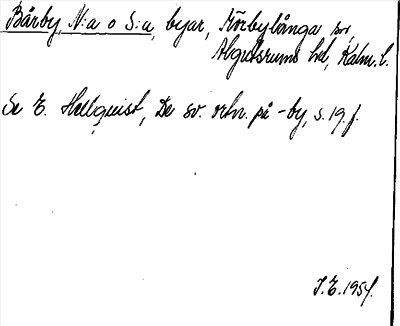 Bårby, N:a o S:a, byar, Hörbylånga sn,
Algutsrums hd, Kalm. l.
Se E. Hellquist, De sv. ortn. på -by, s. 19 f.
J.E. 1954.